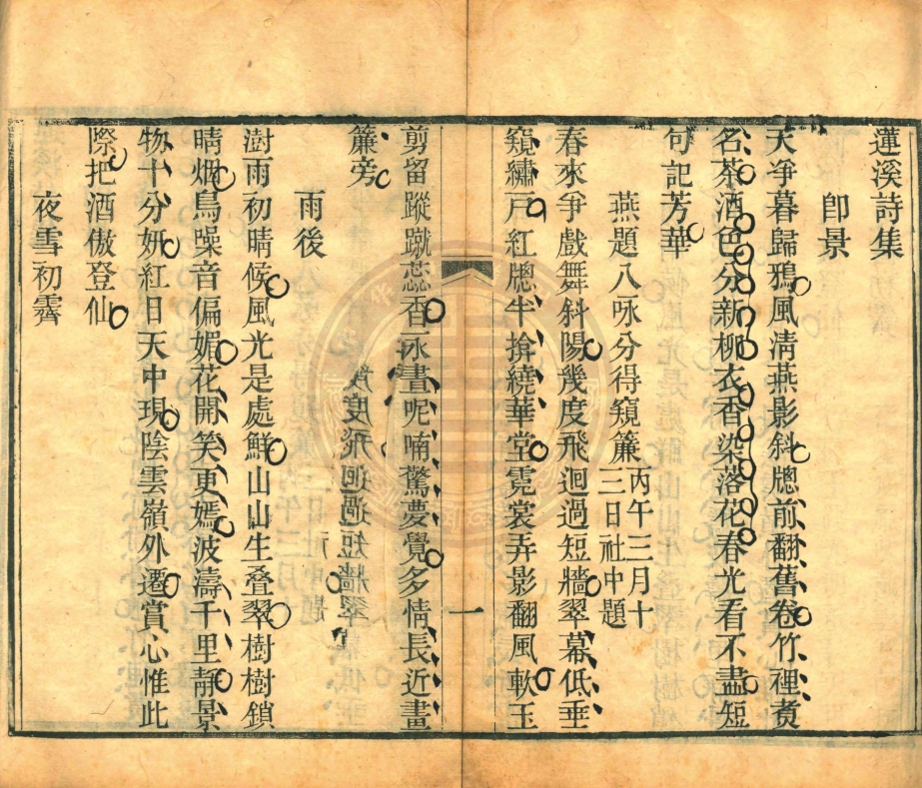 蓮溪詩集
卽景
天爭暮歸鴉風淸燕影斜牕前翻舊卷竹裡煑
名茶酒色分新柳衣香染落花春光看不盡短
句記芳華
燕題八咏分得窺簾丙午三月十
三日社中題
春來爭戲舞斜陽幾度飛迴過短牆翠幕低垂
窺繡戸紅牕半揜繞華堂霓裳弄影翻風軟玉
一
剪留蹤蹴蕊香永晝呢喃驚夢覺多情長近畫
簾旁
雨後
澍雨初晴候風光是處鮮山山生叠翠樹樹鎖
晴烟鳥噪音偏媚花開笑更嫣波濤千里靜景
物十分妍紅日天中現陰雲嶺外遷賞心惟此
際把酒傲登仙
夜雪初霽